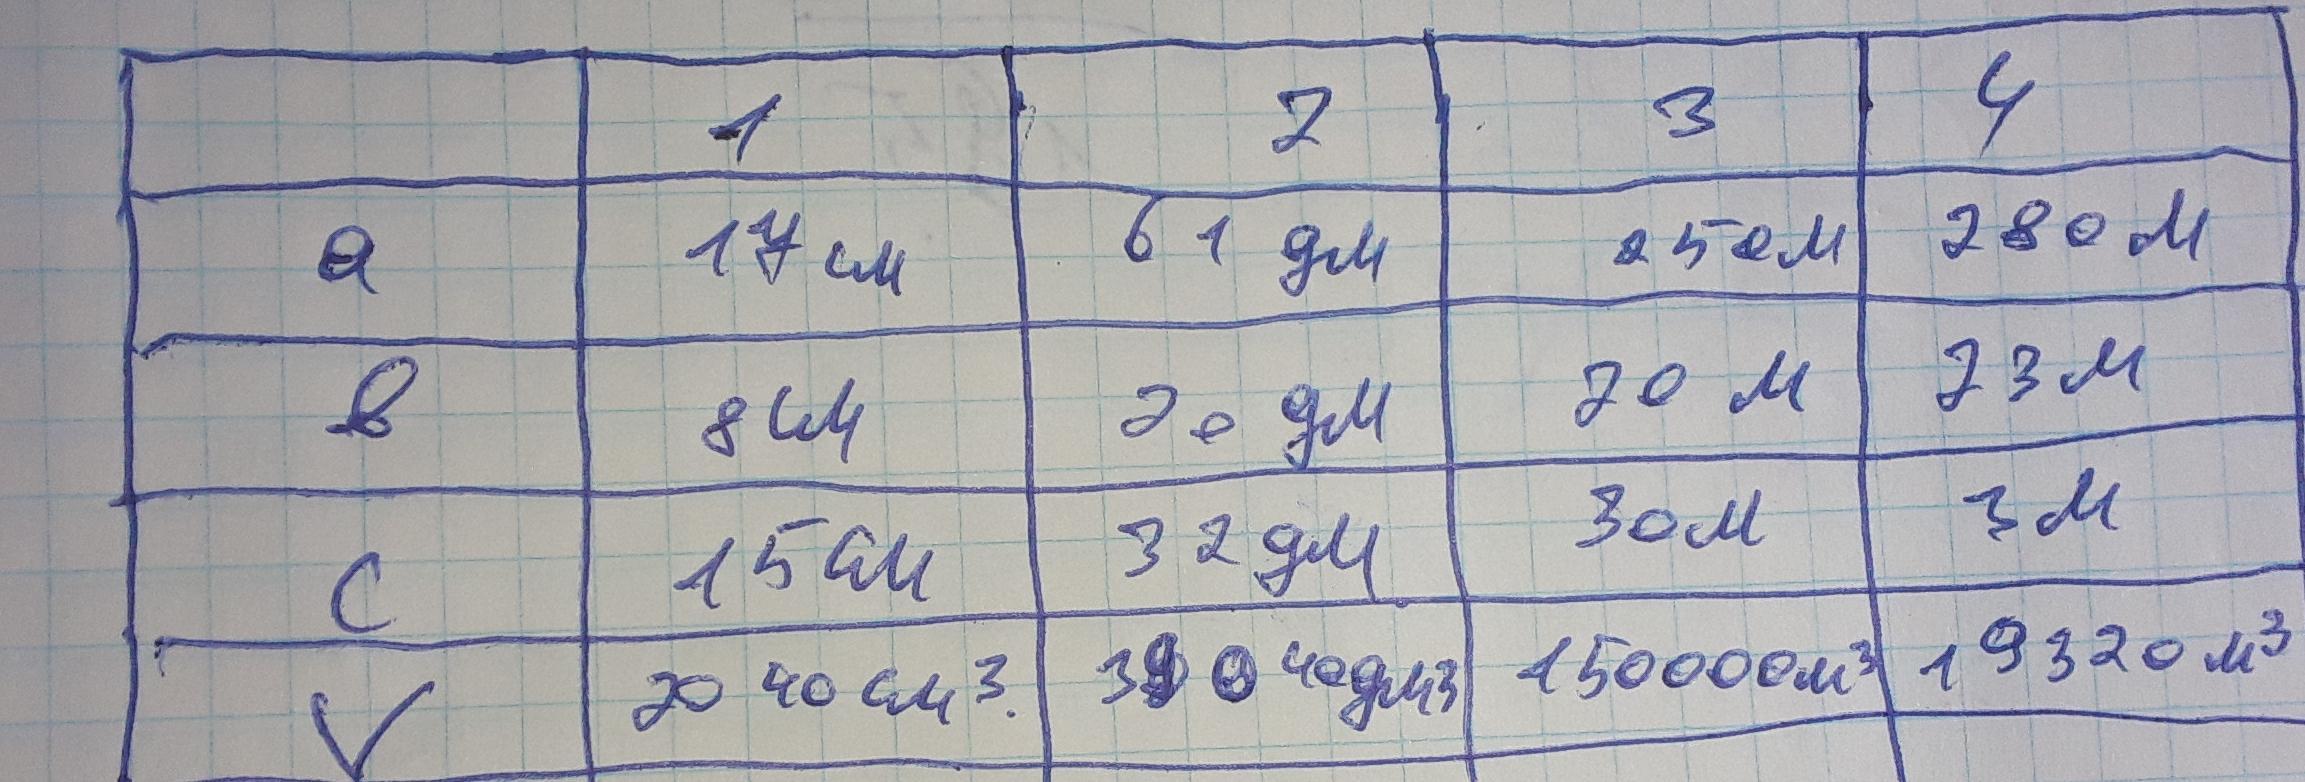 1 2 3 4
a 17 см 61 дм 250м 280 м
в 8 см 20 дм 20 м 23 м
с 15 см 32 дм 30м 3 м
V 2040 см³. 39040дм³ 150000м³ 19320 м³